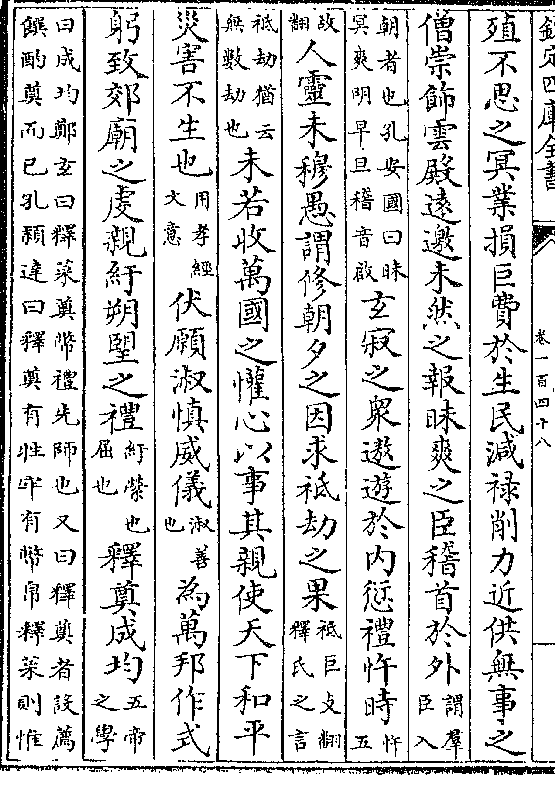 欽定四庫全書
卷一百四十八
殖不思之冥業損巨費於生民減禄削力近供無事之
僧崇飾雲殿遠邀未然之報昧爽之臣稽首於外謂羣臣入
朝者也孔安國曰昧冥爽明早旦稽音啟玄寂之衆遨遊於内愆禮忤時忤五
故翻人靈未穆愚謂修朝夕之因求祇劫之果祇巨支翻釋氏之言
祇劫猶云無數劫也未若收萬國之懽心以事其親使天下和平
災害不生也用孝經文意伏願淑慎威儀淑善也為萬邦作式
躬致郊廟之虔親紆朔望之禮紆縈也屈也釋奠成均五帝之學
曰成均鄭玄曰釋菜奠幣禮先師也又曰釋奠者設薦
饌酌奠而已孔穎達曰釋奠有牲牢有幣帛釋菜則惟